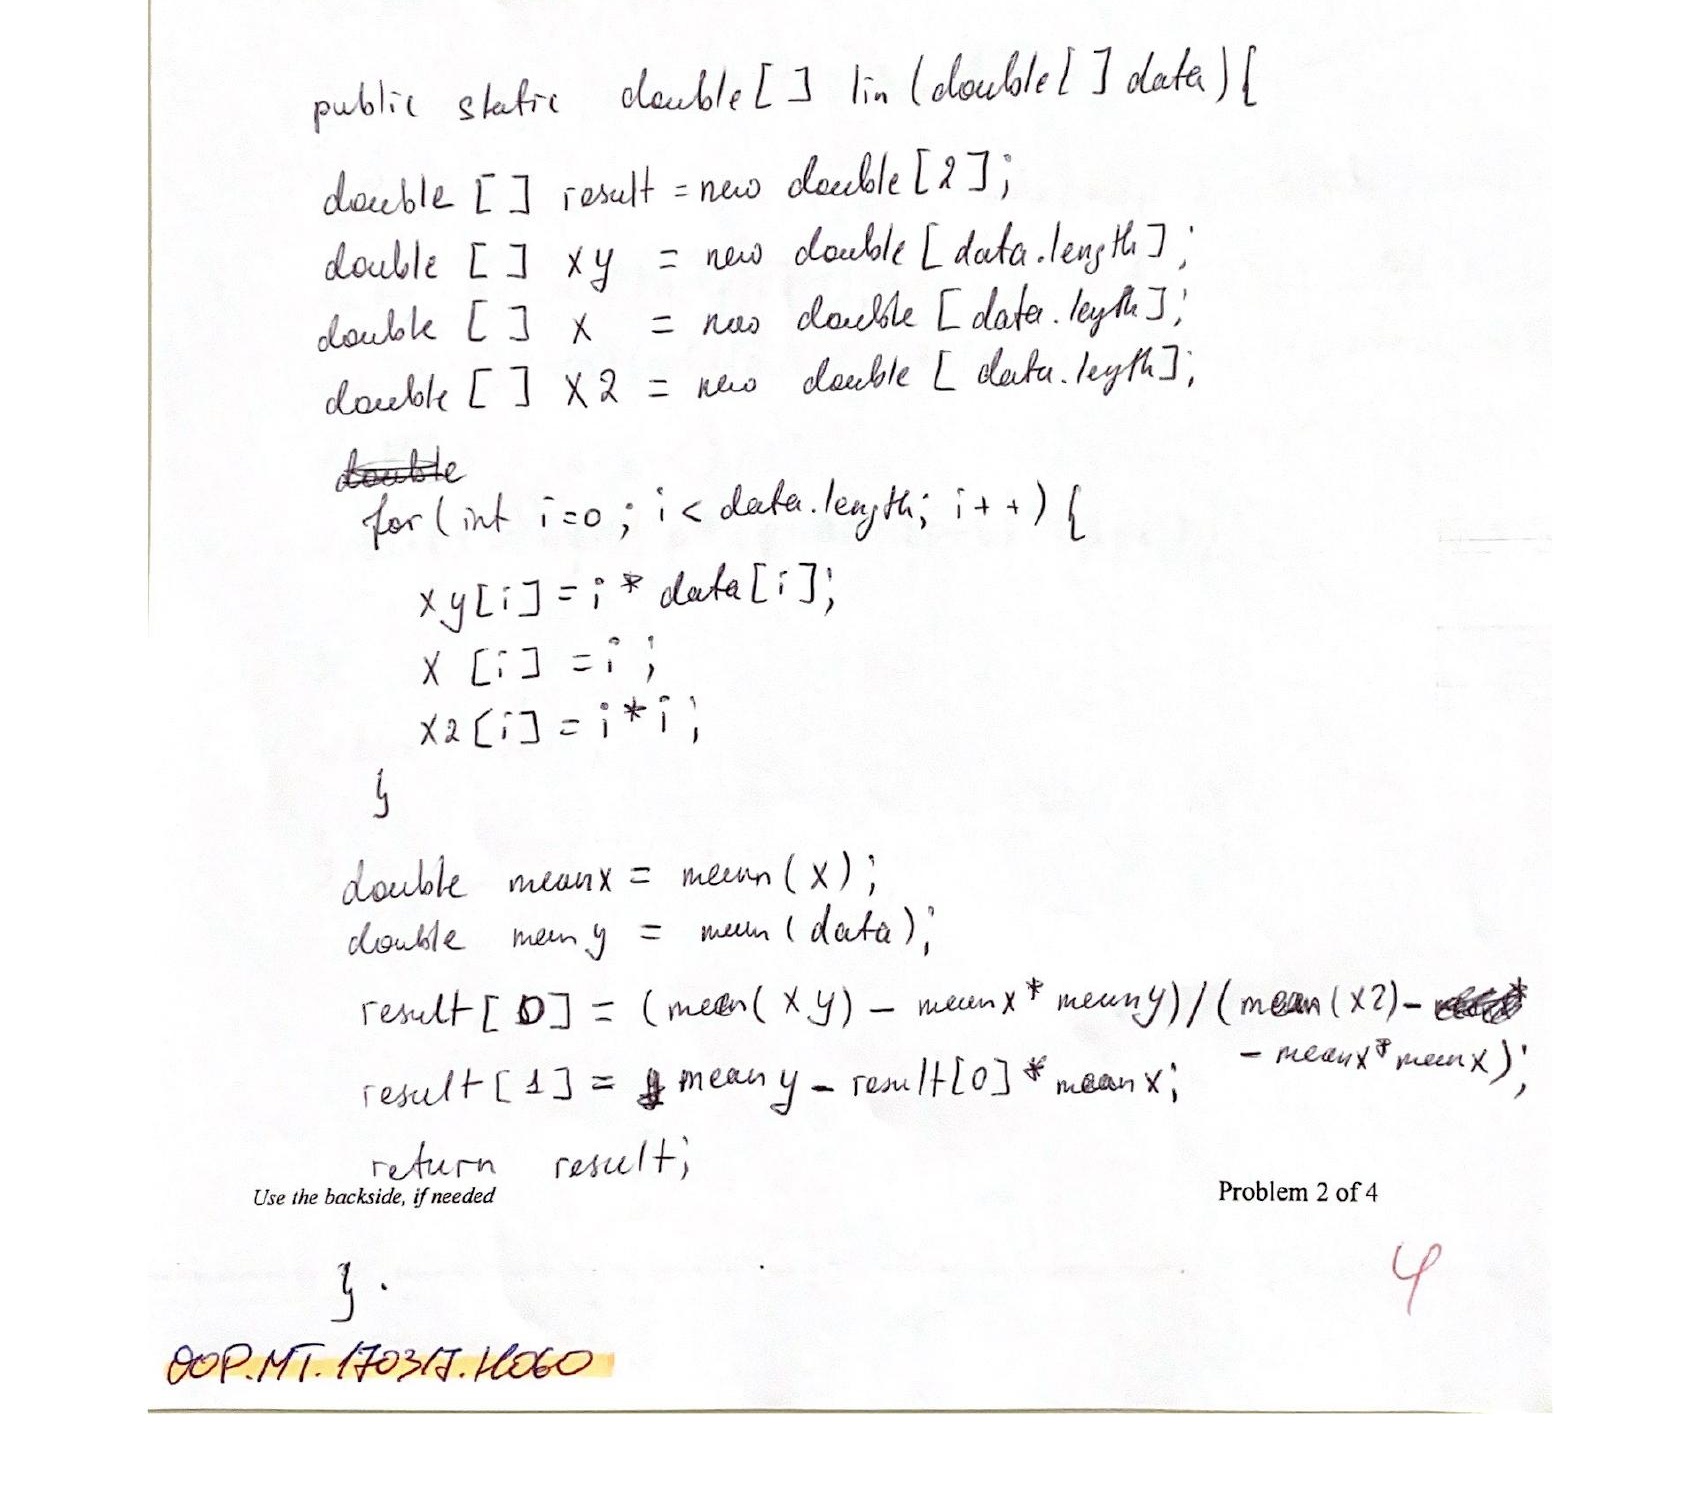 public static double[] lin(double[] data){
double[] result = new double[2];
double[] xy = new double[data.length];
double[] x = new double[data.length];
double[] x2 = new double[data.length];
double
for(int i=0; i< data.length; i++){
xy[i]=i* data[i];
x[i]=i;
x2[i]=i*i;
}
double meanx = mean(x);
double meany = mean(data);
result[0] = (mean(xy) - meanx*meany)/(mean(x2)-
- meanx*meanx);
result[1] = meany - result[0]*meanx;
return result;
Use the backside, if needed Problem 2 of 4
4
}.
OOP.MT.170317.H060